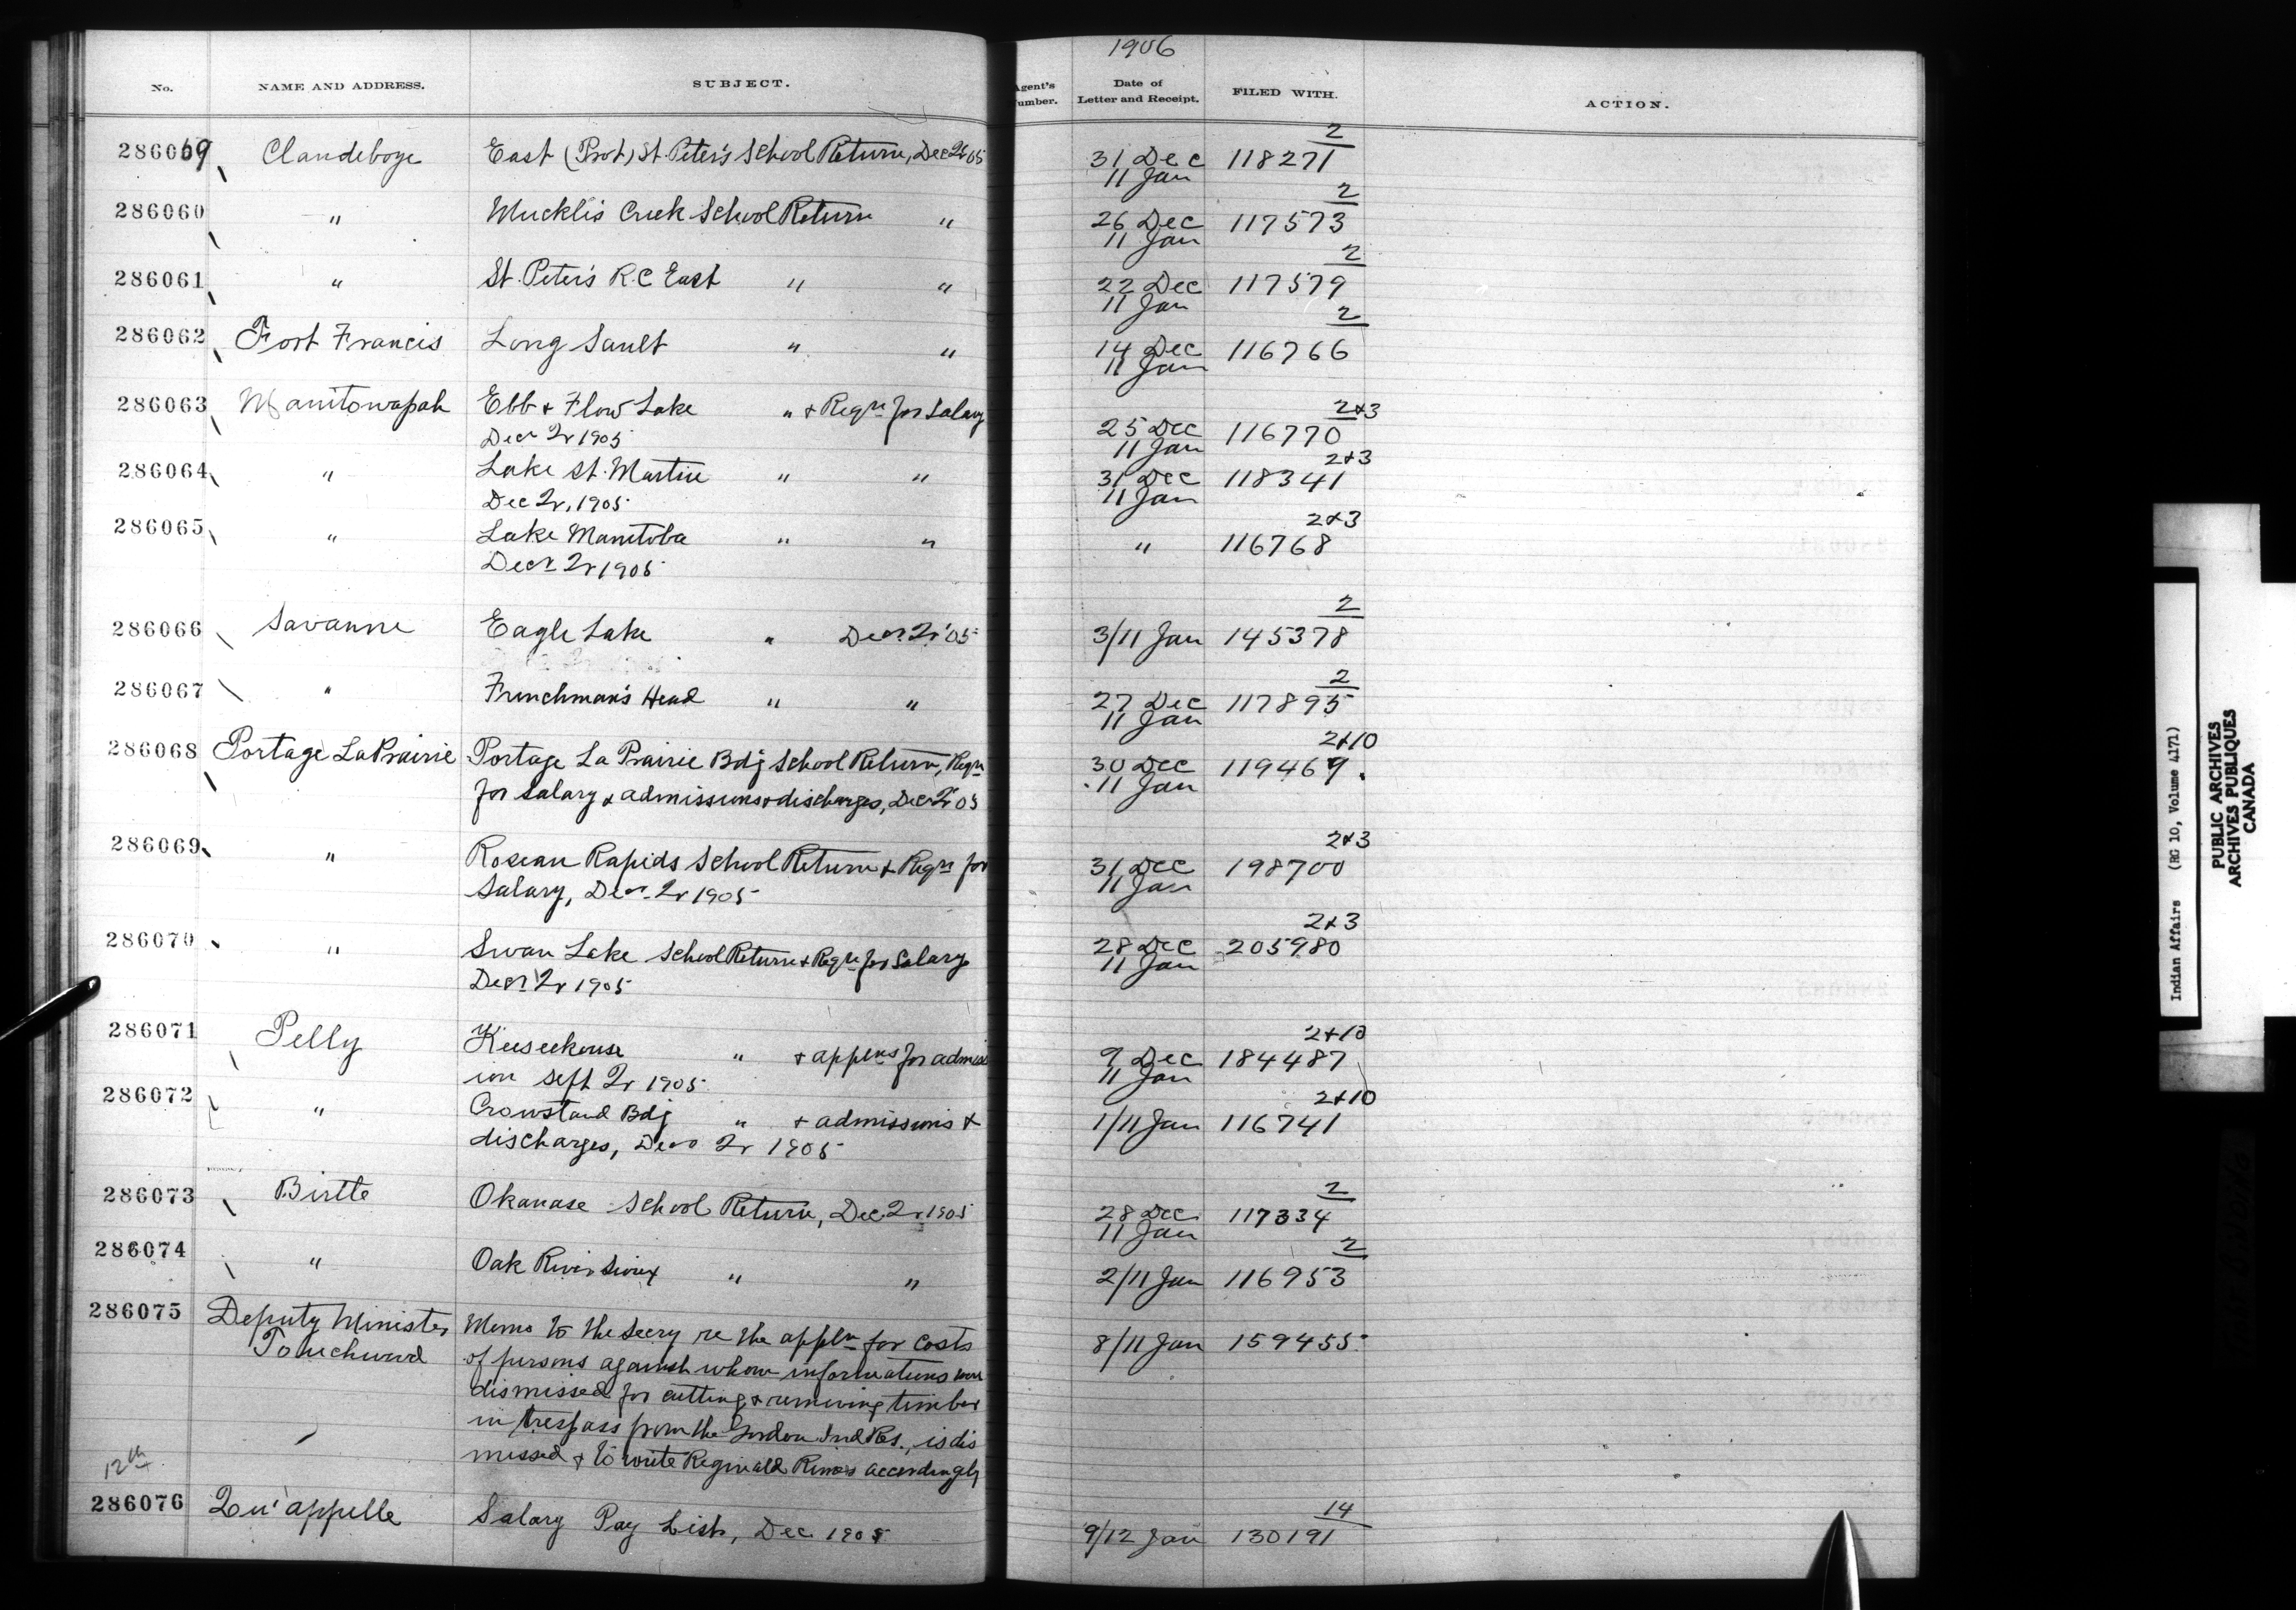 1906
No. NAME AND ADDRESS. SUBJECT. Agent's Number. Date of Letter and Receipt. FILED WITH. ACTION.
2
286069 Clandeboye East (Prot) St. Peter's School Return, Dec 2r 05 31 Dec 118271
11 Jan
2
286060 " Mucklis Creek School Return " 26 Dec 117573
11 Jan
2
286061 " St. Peter's R.C East " " 22 Dec 117579
11 Jan
2
286062 Fort Francis Long Sault " " 14 Dec 116766
11 Jan
2+3
286063 Manitowapah Ebb + Flow Lake " + Reqn for Salary 25 Dec 116770
Decr 2r 1905 11 Jan
2+3
286064 " Lake St. Martin " " 31 Dec 118341
Dec 2r, 1905 11 Jan
2+3
286065 " Lake Manitoba " " " 116768
Decr 2r 1905
2
286066 Savanne Eagle Lake " Decr. 2r '05 3/11 Jan 145378
2
286067 " Frenchman's Head " " 27 Dec 117895
11 Jan
2+10
286068 Portage La Prairie Portage La Prairie Bdg School Return, Reqn 30 Dec 119469.
for Salary + admissions + discharges, Dec 2r 05 11 Jan
2+3
286069 " Roseau Rapids School Return + Reqn for 31 Dec 198700
Salary, Decr. 2r 1905 11 Jan
2+3
286070 " Swan Lake School Return + Reqn for Salary 28 Dec 205980
Decr 2r 1905 11 Jan
2+10
286071 Pelly Keeseekouse " + applns for admiss 9 Dec 184487
ion Sept 2r 1905 11 Jan
2+10
286072 " Crowstand Bdg " + admissions + 1/11 Jan 116741
discharges, Decr 2r 1905
2
286073 Birtle Okanase School Return, Dec 2r 1905 28 Dec 117334
11 Jan
2
286074 " Oak River Sioux " " 2/11 Jan 116953
286075 Deputy Minister Memo to the Secry re the appln for costs 8/11 Jan 159455
Touchwood of persons against whom informations were
dismissed for cutting + removing timber
in trespass from the Gordon Ind Res., is dis
12th missed + to write Reginald Rimes accordingly
14
286076 Qu'appelle Salary Pay List, Dec 1905 9/12 Jan 130191
Indian Affairs (RG 10, Volume 4171)
PUBLIC ARCHIVES
ARCHIVES PUBLIQUES
CANADA